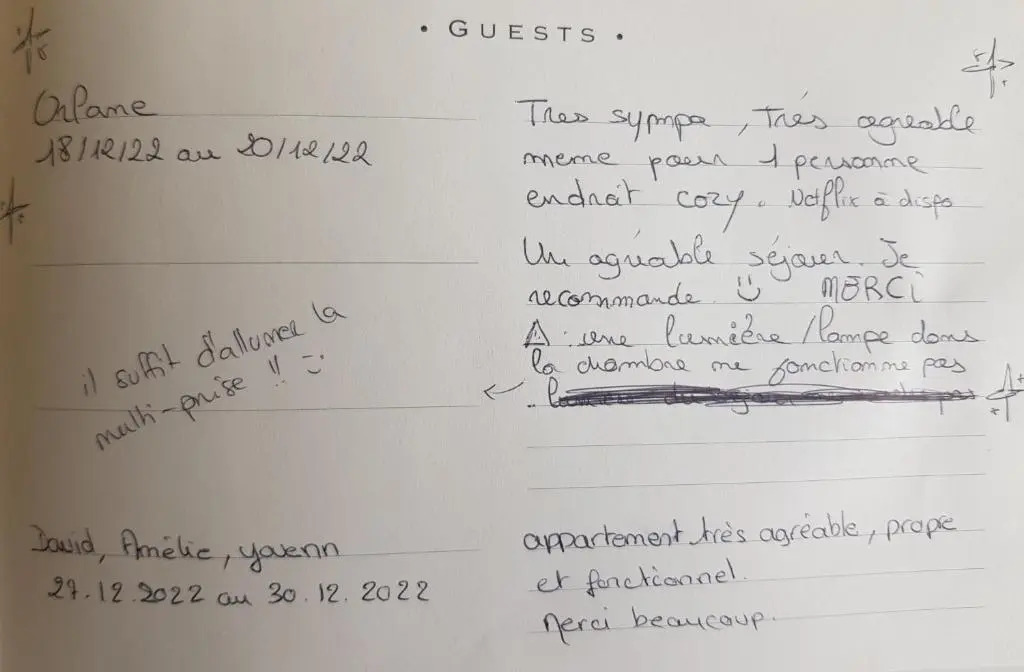 • GUESTS •
Orlane
18/12/22 au 20/12/22
Tres sympa, très agréable
meme pour 1 personne
endroit cozy. Netflix à dispo
Un agréable séjour. Je
recommande MERCI
⚠ : une lumière / lampe dans
la chambre ne fonctionne pas
il suffit d'allumer la
multi-prise !! :)
David, Amélie, yovenn
27.12.2022 au 30.12.2022
appartement très agréable, propre
et fonctionnel.
Merci beaucoup.